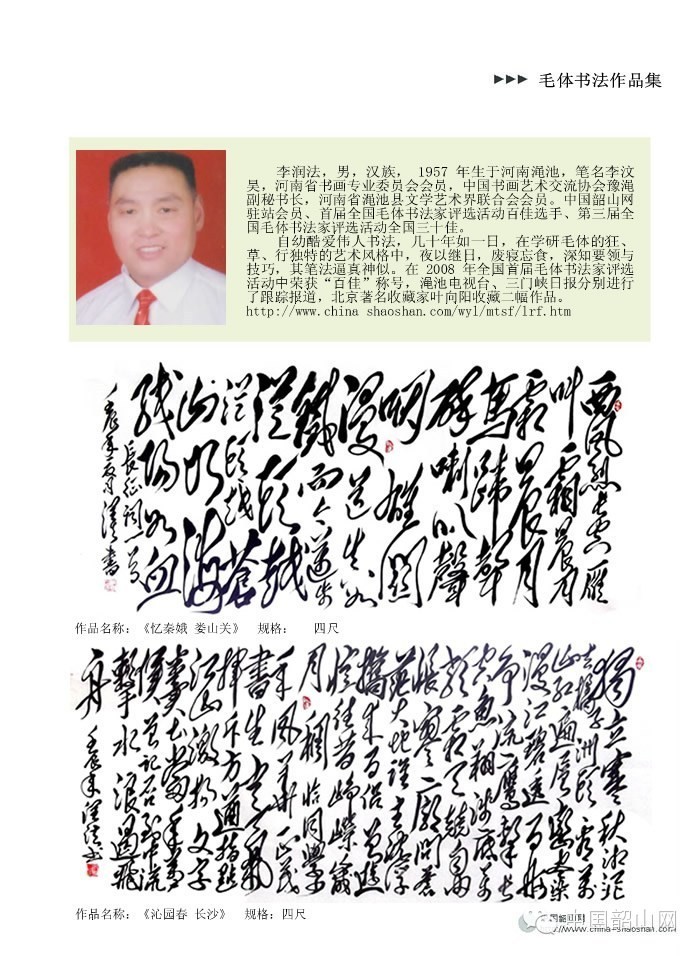 ▶▶▶ 毛体书法作品集
李润法，男，汉族， 1957 年生于河南渑池，笔名李汶
昊，河南省书画专业委员会会员，中国书画艺术交流协会豫渑
副秘书长，河南省渑池县文学艺术界联合会会员。中国韶山网
驻站会员、首届全国毛体书法家评选活动百佳选手、第三届全
国毛体书法家评选活动全国三十佳。
自幼酷爱伟人书法，几十年如一日，在学研毛体的狂、
草、行独特的艺术风格中，夜以继日，废寝忘食，深知要领与
技巧，其笔法逼真神似。在 2008 年全国首届毛体书法家评选
活动中荣获“百佳”称号，渑池电视台、三门峡日报分别进行
了跟踪报道，北京著名收藏家叶向阳收藏二幅作品。
http://www.china shaoshan.com/wyl/mtsf/lrf.htm
西风烈长空雁
叫霜晨月
霜晨月
馬蹄聲
碎喇叭聲
咽雄關
漫道真如
鐵而今邁步
從頭越
從頭越蒼
山如海
残陽如血
長征词一首
作品名称：《忆秦娥 娄山关》 规格： 四尺
獨立寒秋湘江北
去橘子洲頭看萬
山红遍層林盡染
漫江碧透百舸
争流鷹擊長
空魚翔淺底萬
類霜天競自由
悵寥廓問蒼
茫大地誰主沉浮
攜來百侣曾遊
憶往昔崢嶸歲
月稠恰同學少
年風華正茂
書生意氣
揮斥方遒指點
江山激揚文字
糞土當年萬户
侯曾記否到中流
擊水浪遏飛
舟 壬辰年润法书
作品名称：《沁园春 长沙》 规格：四尺
中国韶山网
//www.china-shaoshan.com